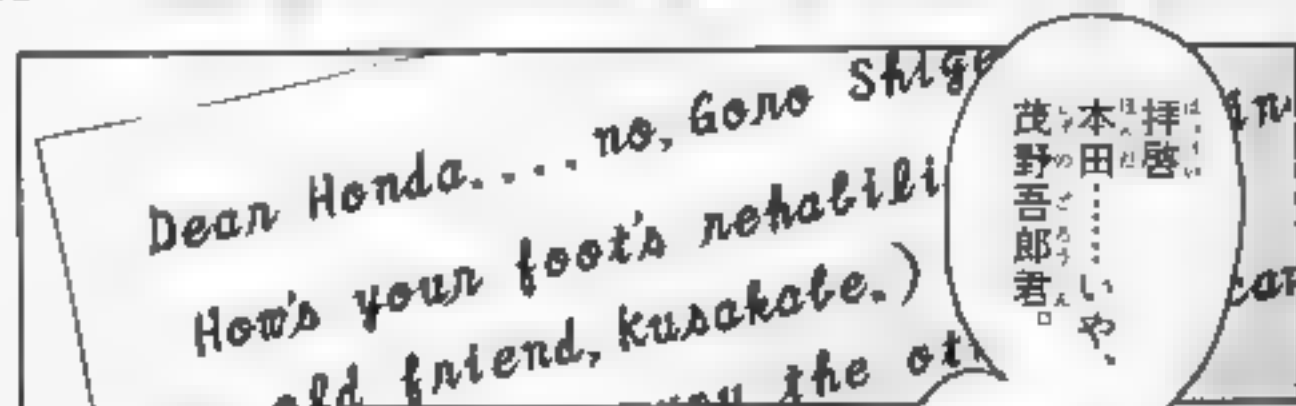 Dear Honda....no, Goro Shige
How's your foot's rehabili
old friend, Kusakabe.)
you the ot
拝啓
本田……いや、
茂野吾郎君。